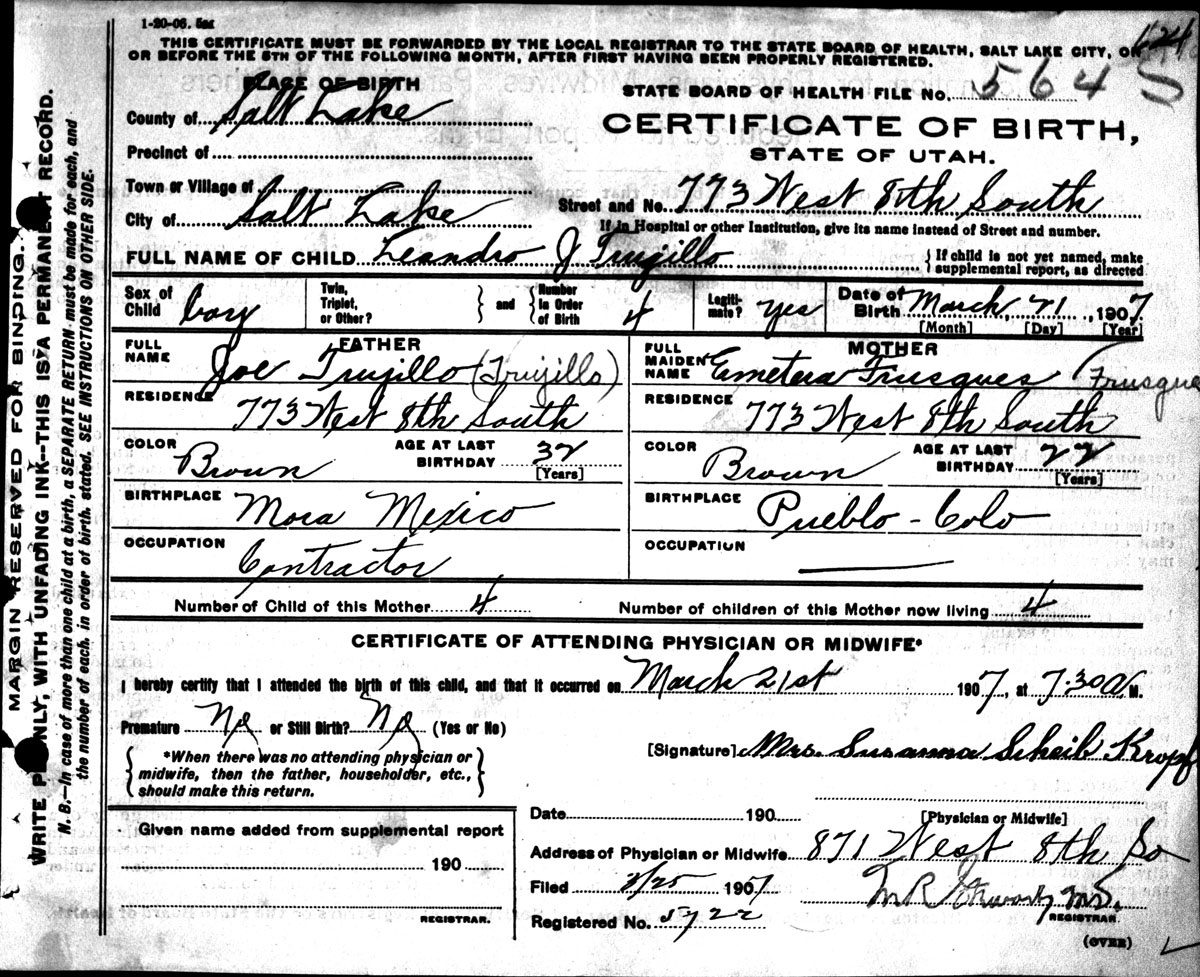 1-20-06. 5m
THIS CERTIFICATE MUST BE FORWARDED BY THE LOCAL REGISTRAR TO THE STATE BOARD OF HEALTH, SALT LAKE CITY, ON
OR BEFORE THE 5TH OF THE FOLLOWING MONTH, AFTER FIRST HAVING BEEN PROPERLY REGISTERED.
PLACE OF BIRTH
STATE BOARD OF HEALTH FILE No. 564 S
County of Salt Lake
CERTIFICATE OF BIRTH,
Precinct of
STATE OF UTAH.
Town or Village of
Street and No. 773 West 8th South
City of Salt Lake
If in Hospital or other Institution, give its name instead of Street and number.
FULL NAME OF CHILD Leandro J Trujillo { If child is not yet named, make
supplemental report, as directed
Sex of Child boy Twin, Triplet, or Other? } and { Number in Order of Birth 4 Legiti-mate? yes Date of Birth March, 21, 1907
[Month] [Day] [Year]
FATHER
FULL NAME Joe Trujillo (Trujillo)
RESIDENCE 773 West 8th South
COLOR Brown AGE AT LAST BIRTHDAY 32
[Years]
BIRTHPLACE Mora Mexico
OCCUPATION Contractor
MOTHER
FULL MAIDEN NAME Emetera Frusques (Frusque
RESIDENCE 773 West 8th South
COLOR Brown AGE AT LAST BIRTHDAY 22
[Years]
BIRTHPLACE Pueblo - Colo
OCCUPATION
Number of Child of this Mother 4 Number of children of this Mother now living 4
CERTIFICATE OF ATTENDING PHYSICIAN OR MIDWIFE*
I hereby certify that I attended the birth of this child, and that it occurred on March 21st 1907, at 7:30 A M.
Premature No or Still Birth? No (Yes or No)
[Signature] Mrs. Susanna Scheib Kropf
{ *When there was no attending physician or
midwife, then the father, householder, etc.,
should make this return. }
[Physician or Midwife]
Date 190
Given name added from supplemental report
190
REGISTRAR.
Address of Physician or Midwife 871 West 8th So
Filed 3/25 1907
REGISTRAR.
Registered No. 5722
(OVER)
MARGIN RESERVED FOR BINDING.
WRITE PLAINLY, WITH UNFADING INK--THIS IS A PERMANENT RECORD.
N. B.—In case of more than one child at a birth, a SEPARATE RETURN must be made for each, and
the number of each, in order of birth, stated. SEE INSTRUCTIONS ON OTHER SIDE.